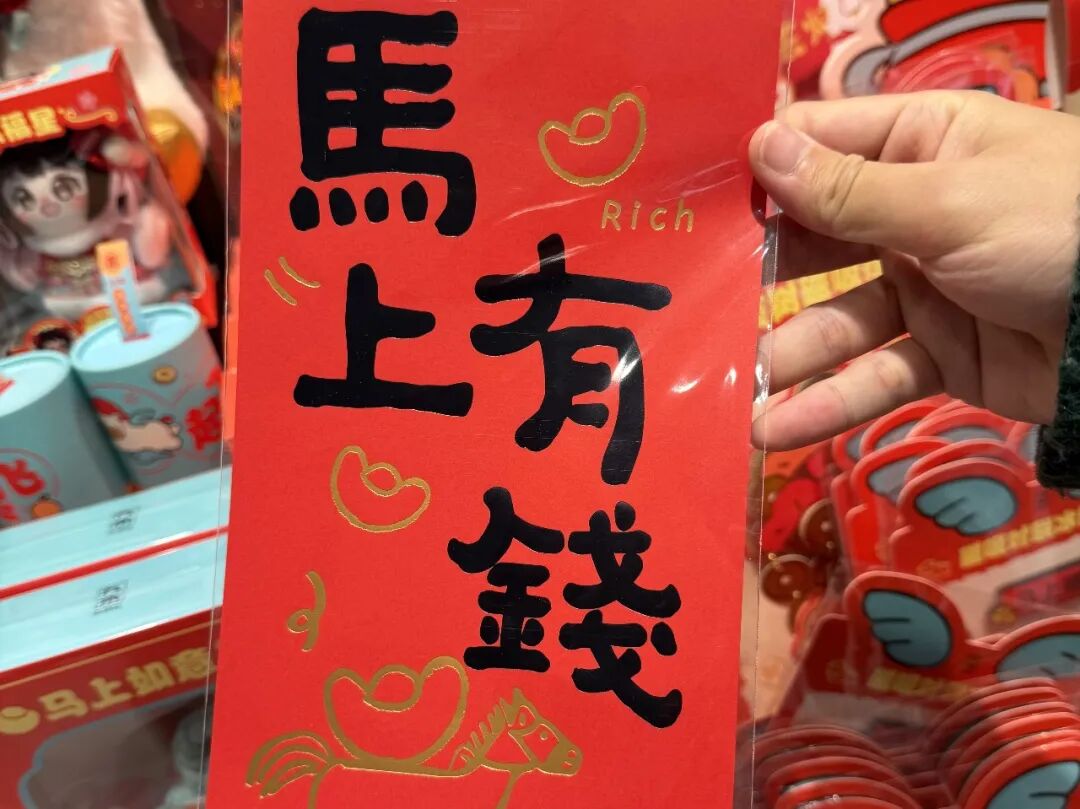 馬上
有錢
Rich
马上如意